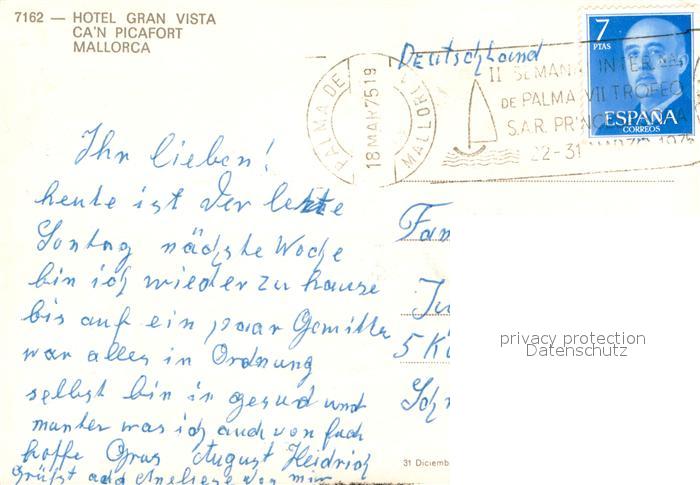 7162 — HOTEL GRAN VISTA
CA'N PICAFORT
MALLORCA
Deutschland
7
PTAS
ESPAÑA
CORREOS
PALMA DE MALLORCA
18 MAR 75 19
II SEMANA INTER
DE PALMA VII TROFEO
S.A.R. PRINCESA
22-31 MARZO 1975
Ihr lieben!
heute ist der letzte
Sontag nächste Woche
bin ich wieder zu hause
bis auf ein paar Gemitter
war alles in Ordnung
selbst bin ich gesud und
munter was ich auch von Euch
hoffe Grus August Heidrich
grüßt von mir
Fam
Ju
5 Kö
Sch
privacy protection
Datenschutz
31 Diciemb